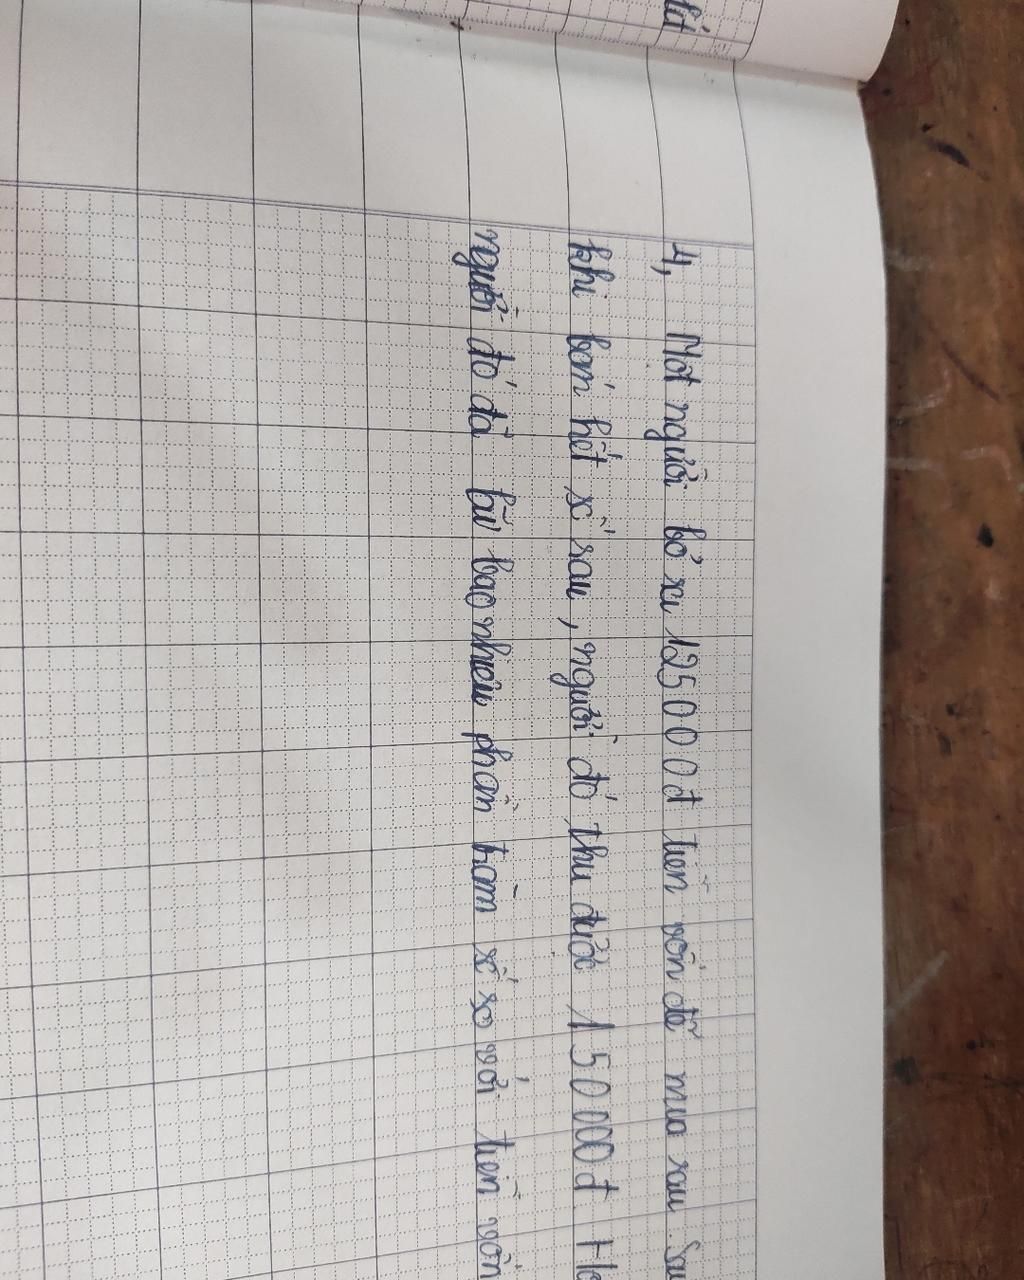 4, Một người bỏ ra 125000đ tiền vốn để mua rau. Sau
khi bán hết số rau, người đó thu được 150000đ. Hỏ
người đó đã lãi bao nhiêu phần trăm số so với tiền vốn